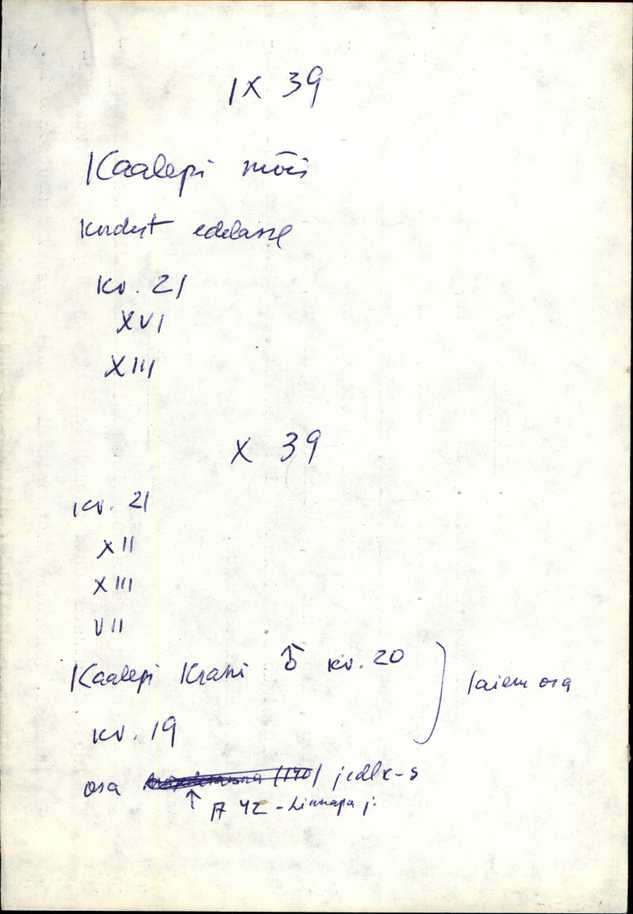 IX 39
Kaalepi mõis
Kirdest edelasse
Kv. 21
XVI
XIII
X 39
Kv. 21
XII
XIII
VII
Kaalepi Krahi kv. 20
laiem osa
kv. 19
osa (140) jcdlx-s
A 42 - Linnaja j.